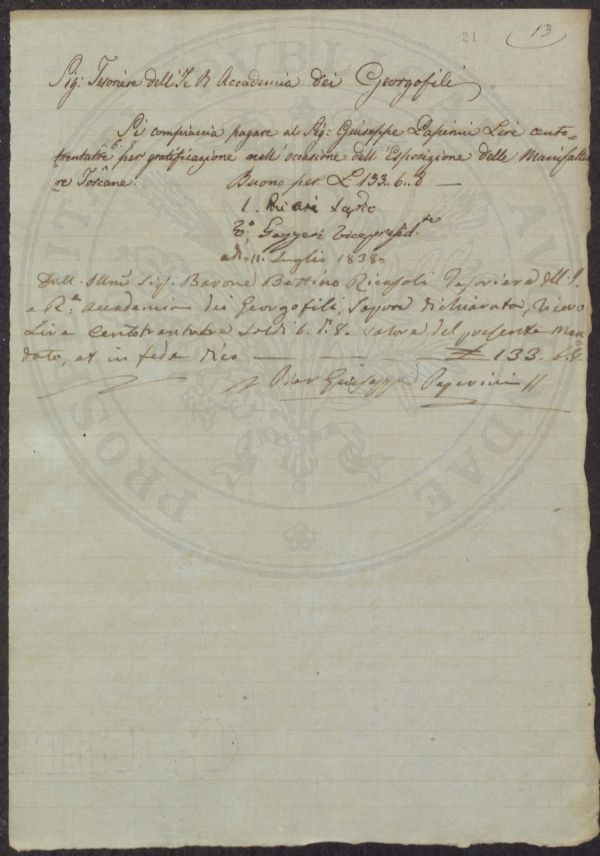 21 13
Sig: Tesoriere dell'I e R Accademia dei Georgofili
Si compiaccia pagare al Sig: Giuseppe Papini Lire cento=
trentatre 6. 8 per gratificazione nell'occasione dell'Esposizione delle Manifattu
re Toscane.
Buono per L 133..6..8 —
V.° Gazzeri Vicepresid.te
adì 11. Luglio 1838=
Dall' Illmo Sig. Barone Bettino Ricasoli Tesoriere dell' I.
e R.a Accademia dei Georgofili, sopra dichiarata, ricevo
Lire Centotrentatre soldi 6. d. 8. valore del presente Man=
dato, et in fede dico — — — — £ 133. 6. 8
Pier Giuseppe
PROS DAE